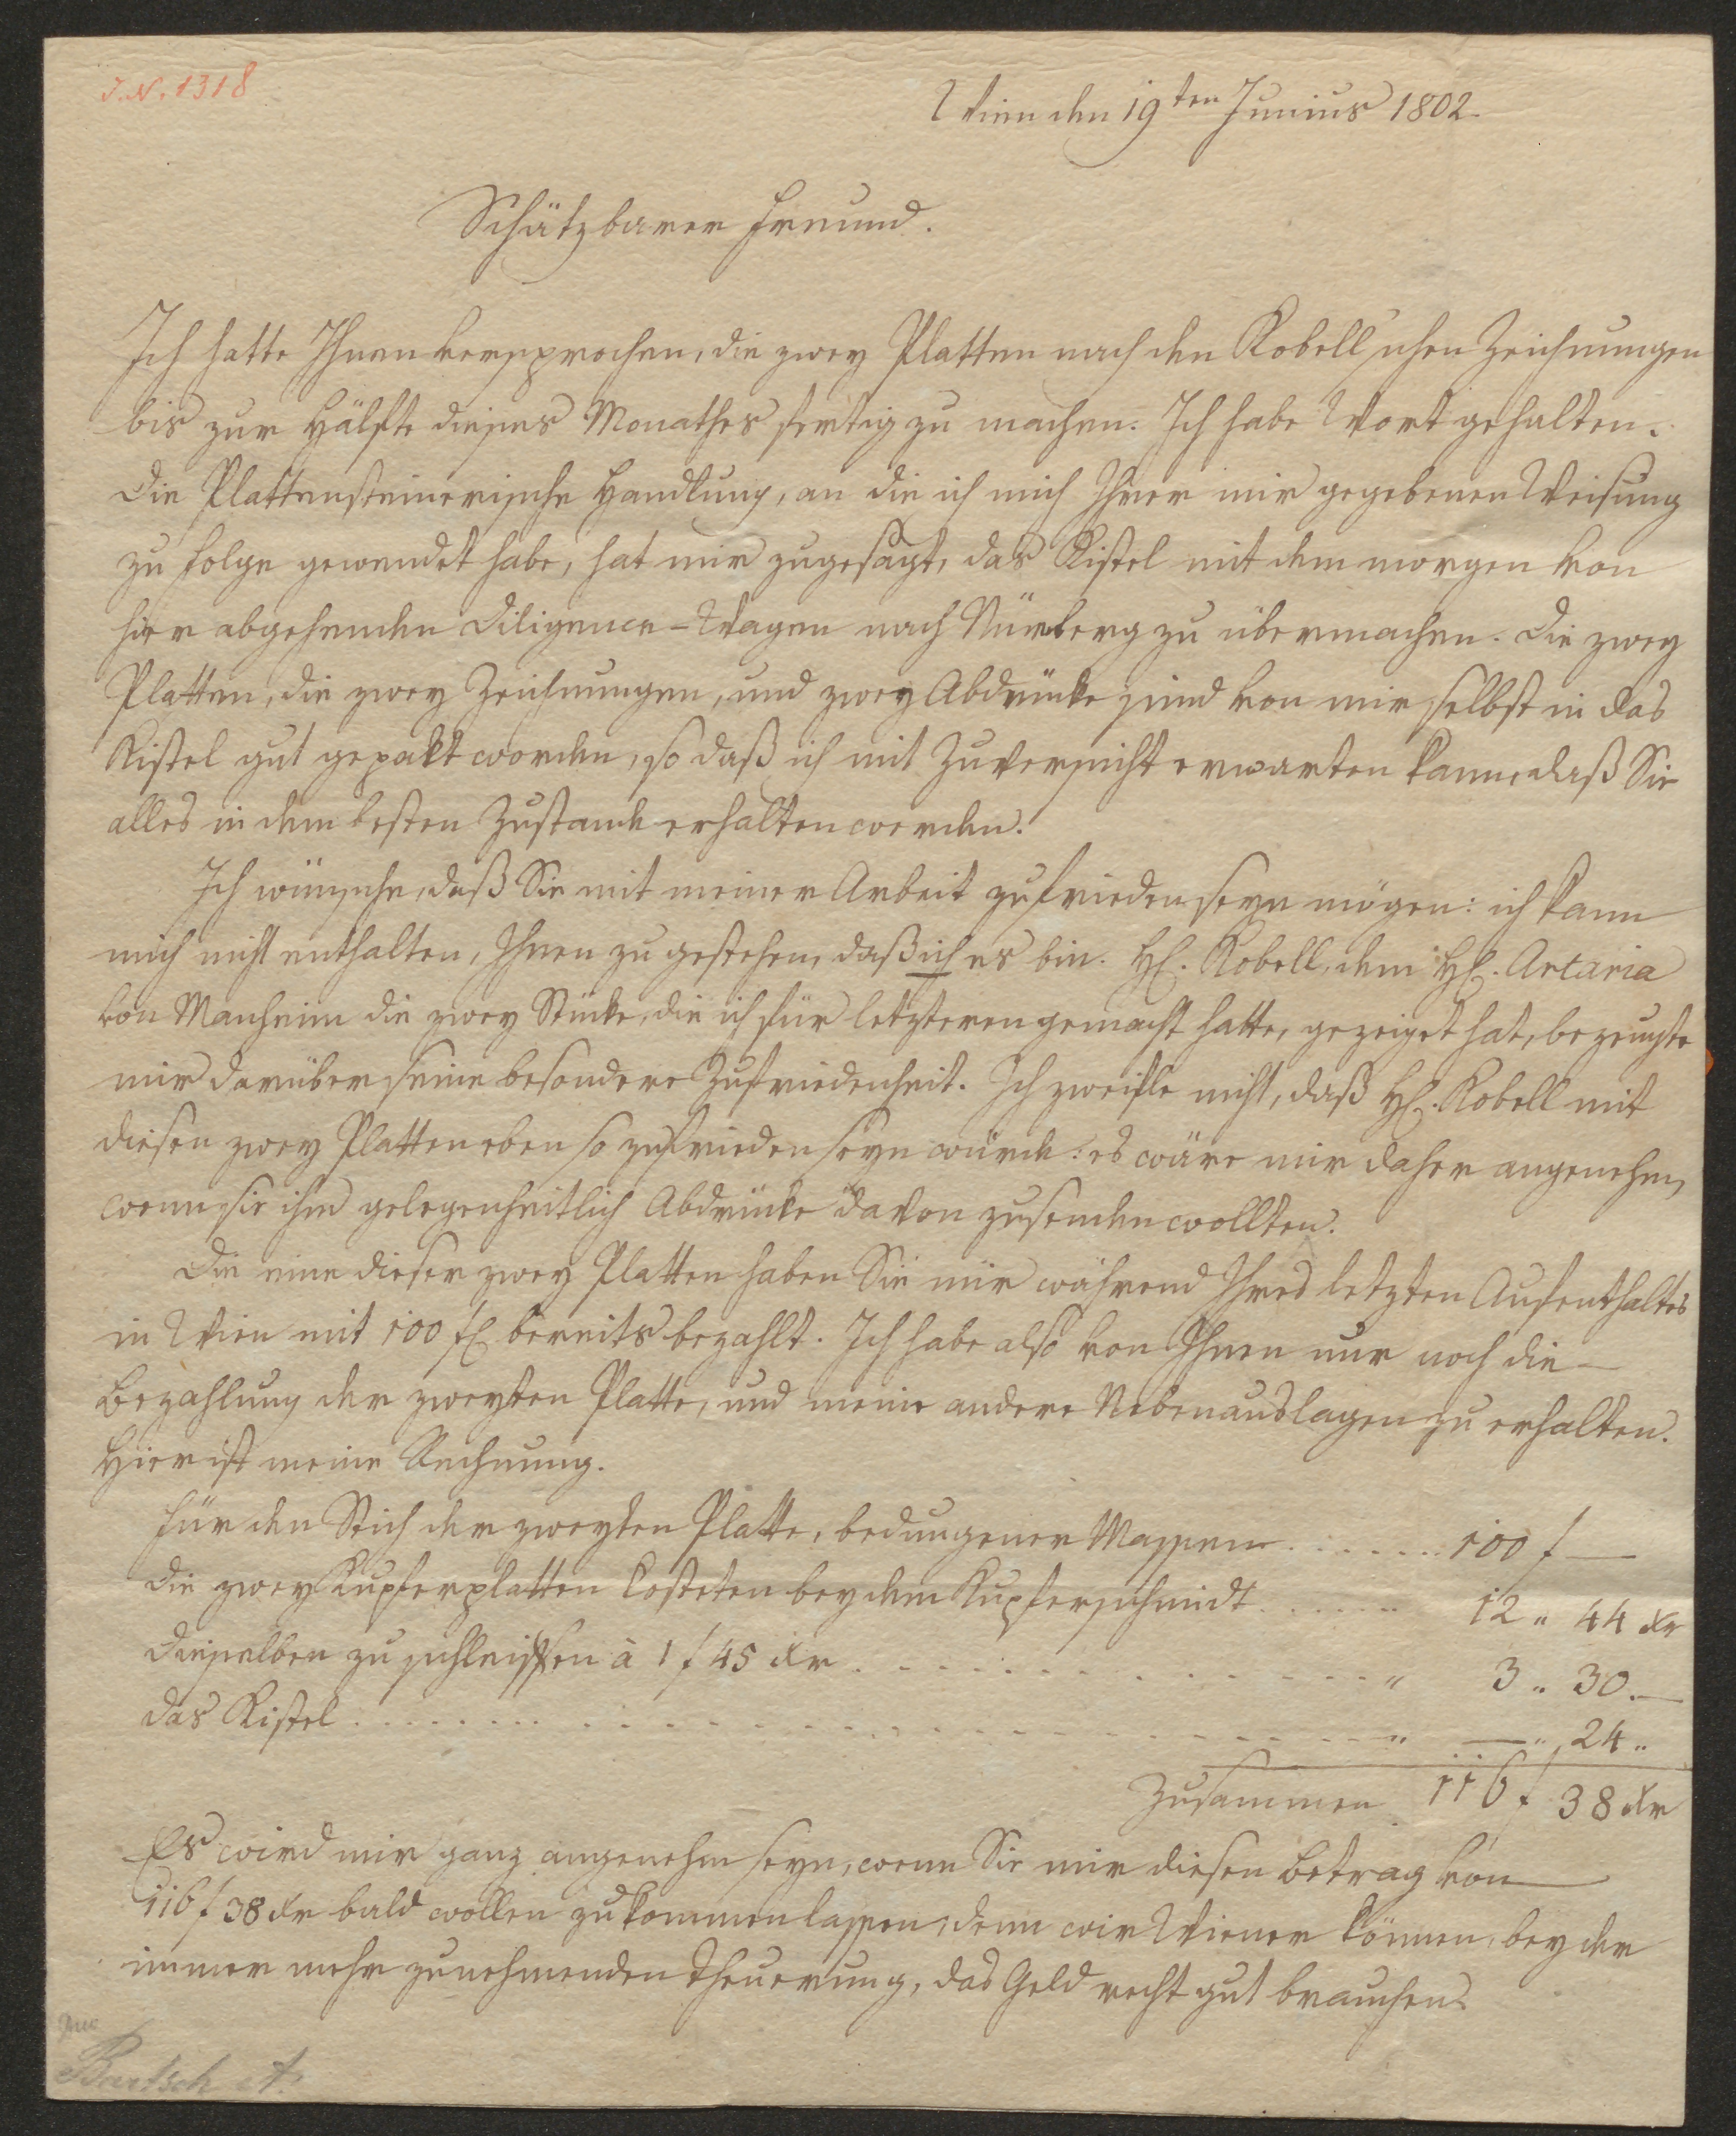 J. N. 1318
Wien den 19ten Junius 1802.
Schätzbarer Freund.
Ich hatte Ihnen versprochen, die zwey Platten nach den Kobellschen Zeichnungen
bis zur Hälfte dieses Monathes fertig zu machen. Ich habe Wort gehalten.
Die Plattensteinerische Handlung, an die ich mich Ihrer mir gegebenen Weisung
zu folge gewendet habe, hat mir zugesagt, das Kistel mit dem morgen von
hier abgehenden Diligence-Wagen nach Nürnberg zu übermachen. Die zwey
Platten, die zwey Zeichnungen, und zwey Abdrücke sind von mir selbst in das
Kistel gut gepakt worden, so daß ich mit Zuversicht erwarten kann, daß Sie
alles in dem besten Zustande erhalten werden.
Ich wünsche, daß Sie mit meiner Arbeit zufrieden seyn mögen: ich kann
mich nicht enthalten, Ihnen zu gestehen, daß ich es bin. H. Kobell, dem H. Artaria
von Manheim die zwey Stücke, die ich für letzteren gemacht hatte, gezeiget hat, bezeugte
mir darüber seine besondere Zufriedenheit. Ich zweifle nicht, daß H. Kobell mit
diesen zwey Platten eben so zufrieden seyn würde: es wäre mir daher angenehm,
wenn sie ihm gelegenheitlich Abdrücke davon zusenden wollten.
Die eine dieser zwey Platten haben Sie mir während Ihres letzten Aufenthaltes
in Wien mit 100 fl bereits bezahlt. Ich habe also von Ihnen nur noch die
Bezahlung der zweyten Platte, und meine andere Nebenauslagen zu erhalten.
Hier ist meine Rechnung.
Für den Stich der zweyten Platte, bedungener Massen . . . . . . . 100 f —
Die zwey Kupferplatten kosteten bey dem Kupferschmidt . . . . . . 12 " 44 xr
Dieselben zu schleissen à 1 f 45 xr . . . . . . . . . . . . " 3 " 30. —
das Kistel . . . . . . . . . . . . . . . . . . . . " — " 24 "
Zusammen 116 f 38 xr
Es wird mir ganz angenehm seyn, wenn Sie mir diesen Betrag von
116 f 38 xr bald wollen zukommen lassen, denn wir Wiener können, bey der
immer mehr zunehmenden Theuerung, das Geld recht gut brauchen.
Bartsch A.